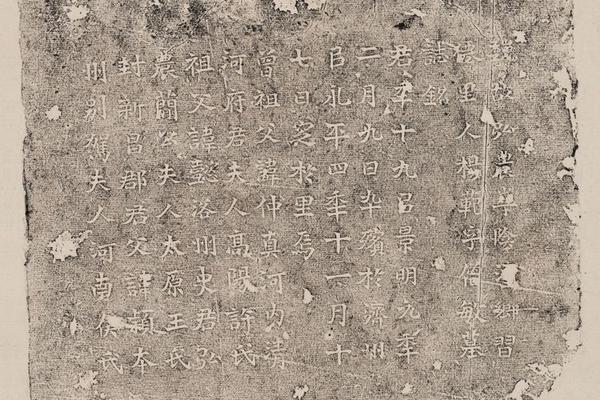 魏故弘農華陰潼鄉習
僊里人楊範字僧敏墓
誌銘
君年十九㠯景明元年
二月九日卒殯於濟州
㠯永平四年十一月十
七日窆於里焉
曾祖父諱仲真河內清
河府君夫人高陽許氏
祖父諱懿洛州史君弘
農簡公夫人太原王氏
封新昌郡君父諱穎本
州別駕夫人河南侯氏